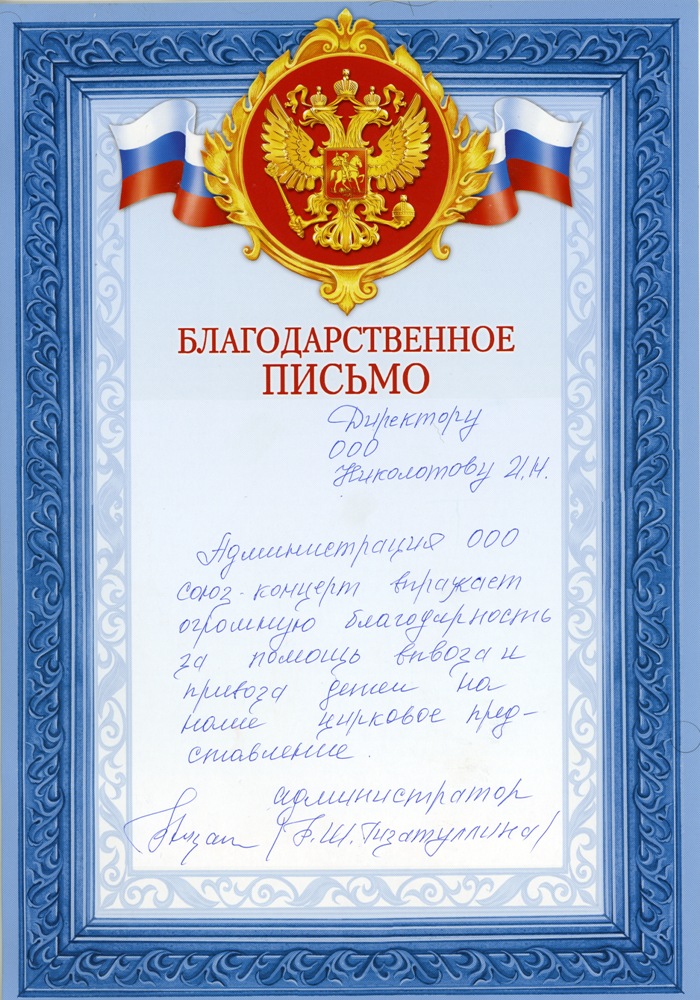 БЛАГОДАРСТВЕННОЕ
ПИСЬМО
Директору
ООО
Николотову И.Н.
Администрация ООО
союз-концерт выражает
огромную благодарность
за помощь ввоза и
привоза детей на
наше цирковое пред-
ставление.
администратор
(Б.Ш. Гизатуллина)